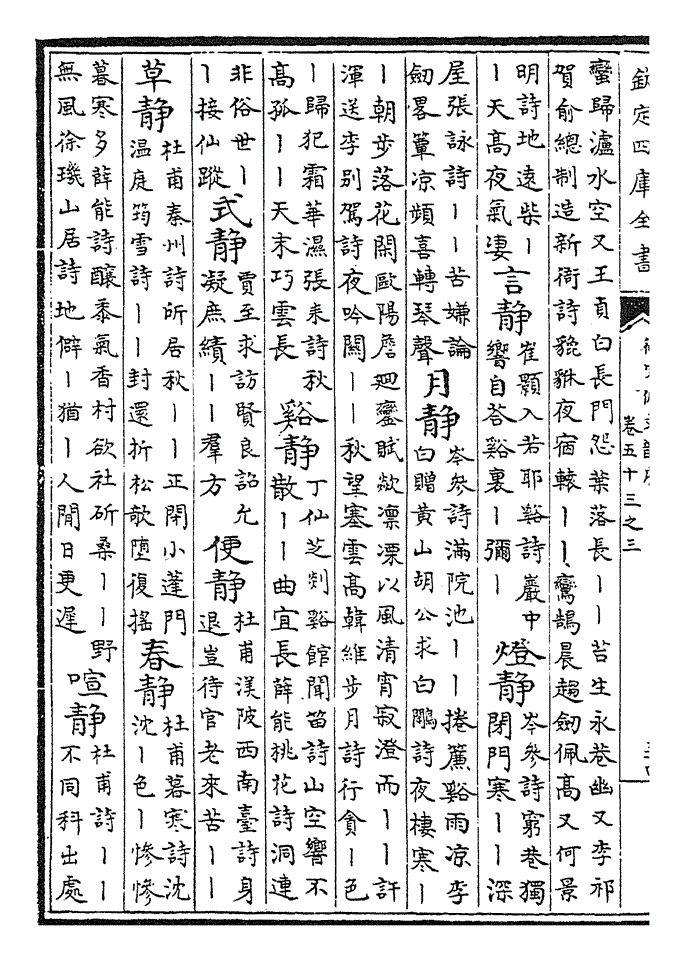 欽定四庫全書
卷五十三之三
蠻歸瀘水空又王貞白長門怨葉落長丨丨苔生永巷幽又李祁
賀俞總制造新衙詩貔貅夜宿轅丨丨鸞鵠晨趨劒佩高又何景
明詩地遠柴丨
丨天高夜氣凄
言静
崔顥入若耶谿詩巖中
響自答谿裏丨彌丨
燈静
岑參詩窮巷獨
閉門寒丨丨深
屋張詠詩丨丨苦嫌論
劒畧簟凉頻喜轉琴聲
月静
岑參詩滿院池丨丨捲簾谿雨凉李
白贈黄山胡公求白鷴詩夜棲寒丨
丨朝步落花閑歐陽詹廻鸞賦歘凛凓以風清宵寂澄而丨丨許
渾送李别駕詩夜吟闗丨丨秋望塞雲高韓維步月詩行貪丨色
丨歸犯霜華濕張耒詩秋
髙孤丨丨天末巧雲長
谿静
丁仙芝剡谿館聞笛詩山空響不
散丨丨曲宜長薛能桃花詩洞連
非俗世丨
丨接仙蹤
式静
賈至求訪賢良詔允
凝庶績丨丨羣方
便静
杜甫渼陂西南臺詩身
退豈待官老來苦丨丨
草静
杜甫秦州詩所居秋丨丨正閉小蓬門
温庭筠雪詩丨丨封還折松欹墮復摇
春静
杜甫暮寒詩沈
沈丨色丨慘慘
暮寒多薛能詩釀黍氣香村欲社斫桑丨丨野
無風徐璣山居詩地僻丨猶丨人閒日更遲
喧静
杜甫詩丨丨
不同科出處